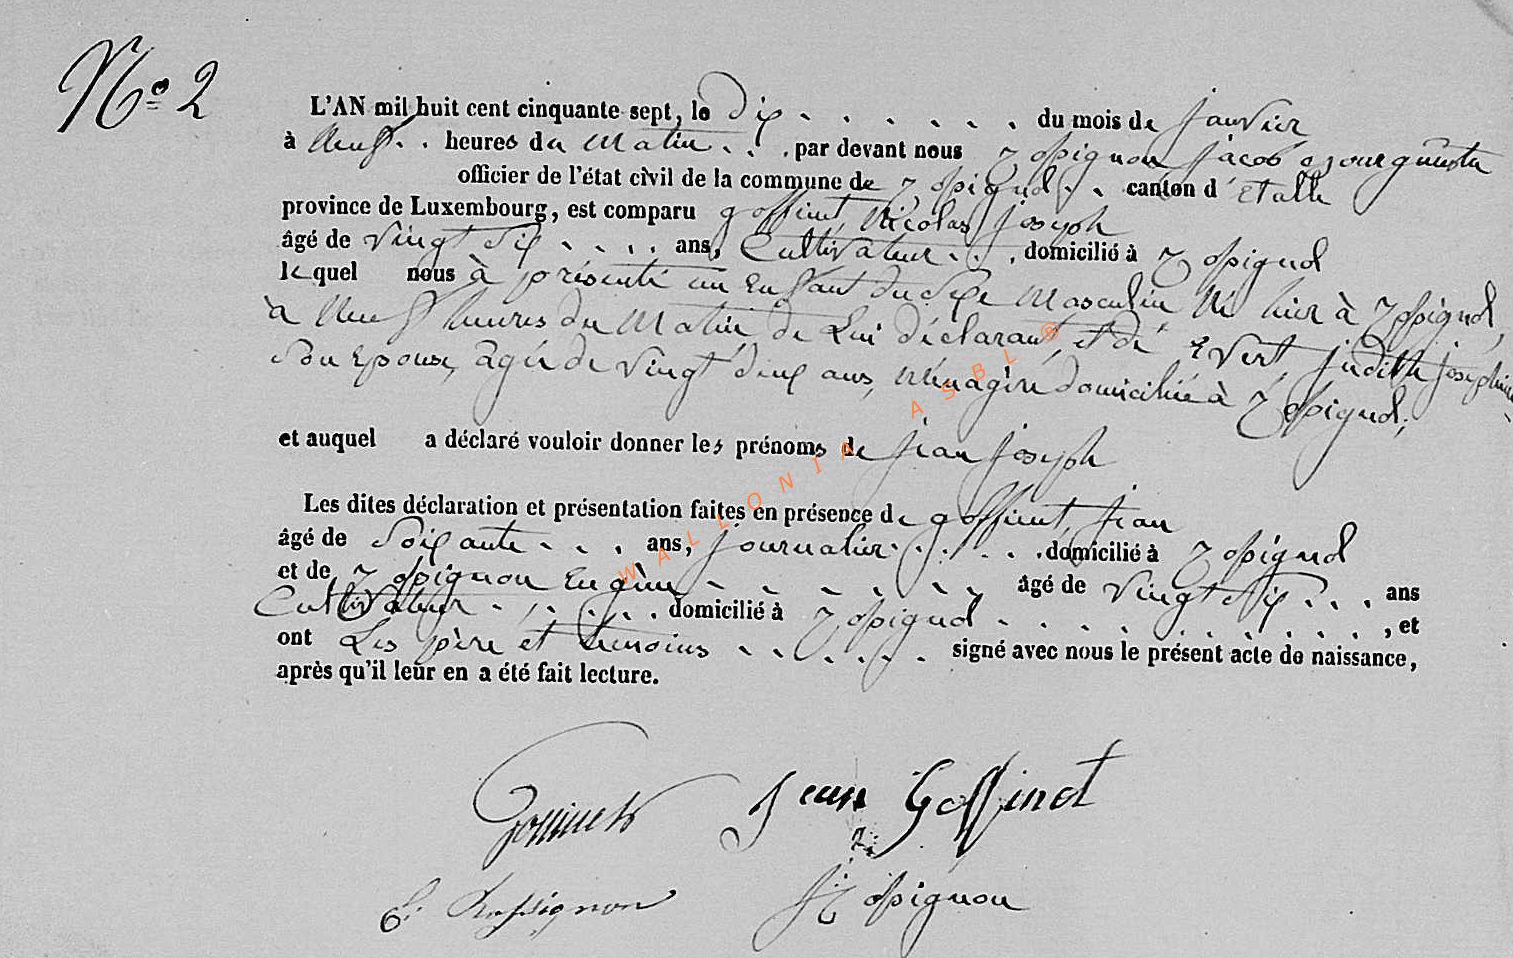 N.º 2
L'AN mil huit cent cinquante sept, le dix . . . . . . du mois de Janvier
à Neuf . . heures du Matin . . . par devant nous Rossignon Jacob
officier de l'état civil de la commune de Rossignol . . canton d'Etalle
province de Luxembourg, est comparu goffinet, Nicolas Joseph
âgé de vingt six . . . . ans, Cultivateur . . . domicilié à Rossignol
lequel nous à présenté un Enfant du Sexe Masculin Né hier à Rossignol,
à Neuf heures du Matin, de Lui déclarant, et de Evert, Judith Josephine
Son Epouse, agée de vingt deux ans, Ménagère domiciliée à Rossignol,
et auquel a déclaré vouloir donner les prénoms de Jean Joseph
Les dites déclaration et présentation faites en présence de goffinet, Jean
âgé de Soixante . . . ans, Journalier . . . . . . domicilié à Rossignol
et de Rossignon Eugène . . . . . . . âgé de vingt six . . . ans
Cultivateur . . . . . . domicilié à Rossignol . . . . . . . . . . . . , et
ont Les père et témoins . . . . . . signé avec nous le présent acte de naissance,
après qu'il leur en a été fait lecture.
Goffinet Jean Goffinet
E. Rossignon J Rossignon
WALLONIA ASBL ©